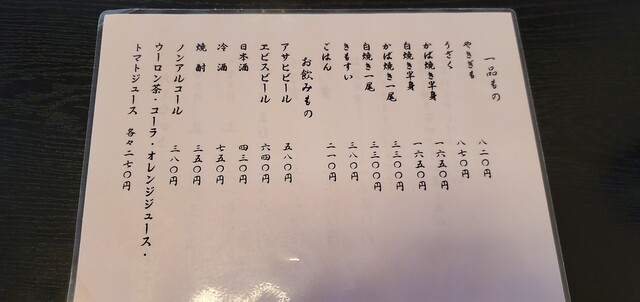 一品もの
やきぎも 八二〇円
うざく 八七〇円
かば焼き半身 一六五〇円
白焼き半身 一六五〇円
かば焼き一尾 三三〇〇円
白焼き一尾 三三〇〇円
きもすい 三八〇円
ごはん 二一〇円
お飲みもの
アサヒビール 五八〇円
エビスビール 六四〇円
日本酒 四三〇円
冷酒 七五〇円
焼酎 三五〇円
ノンアルコール 三八〇円
ウーロン茶・コーラ・オレンジジュース・
トマトジュース 各々二七〇円